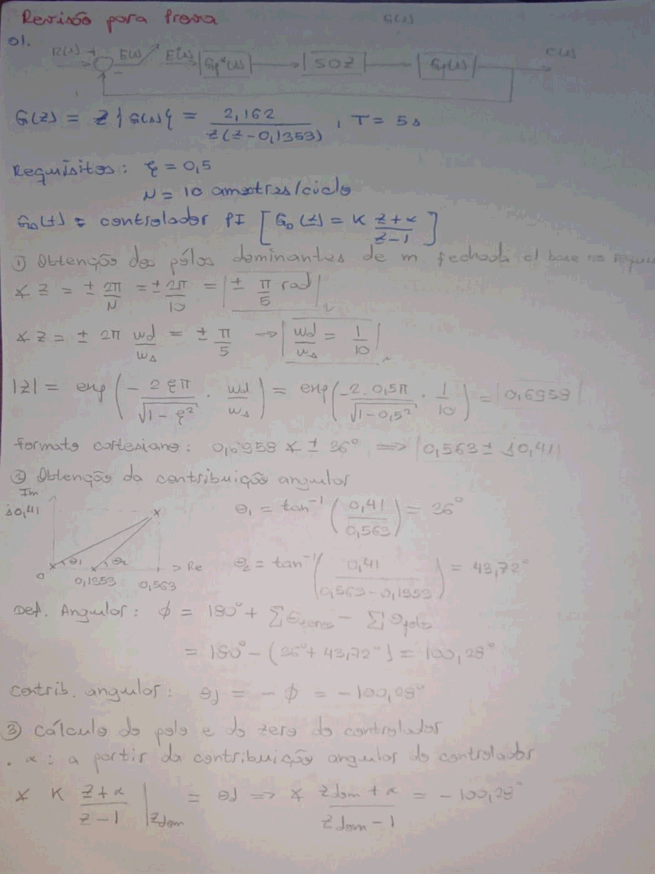 Revisão para Prova
G(s)
01.
R(s) + - E(s) E*(s) G_D*(s) SOZ G_p(s) C(s)
G(z) = Z{G(s)} = 2,162 / z(z-0,1353) , T = 5s
Requisitos: ξ = 0,5
N = 10 amostras/ciclo
G_D(z) = controlador PI [G_D(z) = K (z+α)/(z-1)]
① Obtenção dos pólos dominantes de m fechada c/ base nos requis
∡ z = ± 2π/N = ± 2π/10 = |± π/5 rad|
∡ z = ± 2π wd/ws = ± π/5 → |wd/ws = 1/10|
|z| = exp(- 2ξπ/√(1-ξ²) · wd/ws) = exp(- 2·0,5π/√(1-0,5²) · 1/10) = |0,6958|
formato cartesiano: 0,6958 ∡ ± 36° ⟹ |0,563 ± j0,41|
② Obtenção da contribuição angular
Im
j0,41
θ₁ θ₂ Re
0 0,1353 0,563
θ₁ = tan⁻¹(0,41/0,563) = 36°
θ₂ = tan⁻¹(0,41/(0,563-0,1353)) = 43,72°
Def. Angular: φ = 180° + Σθzeros - Σθpolo
= 180° - (36° + 43,72°) = 100,28°
Contrib. angular: θj = - φ = - 100,28°
③ Cálculo do polo e do zero do controlador
. α: a partir da contribuição angular do controlador
∡ K (z+α)/(z-1) |zdom = θj ⟹ ∡ (zdom + α)/(zdom - 1) = - 100,28°